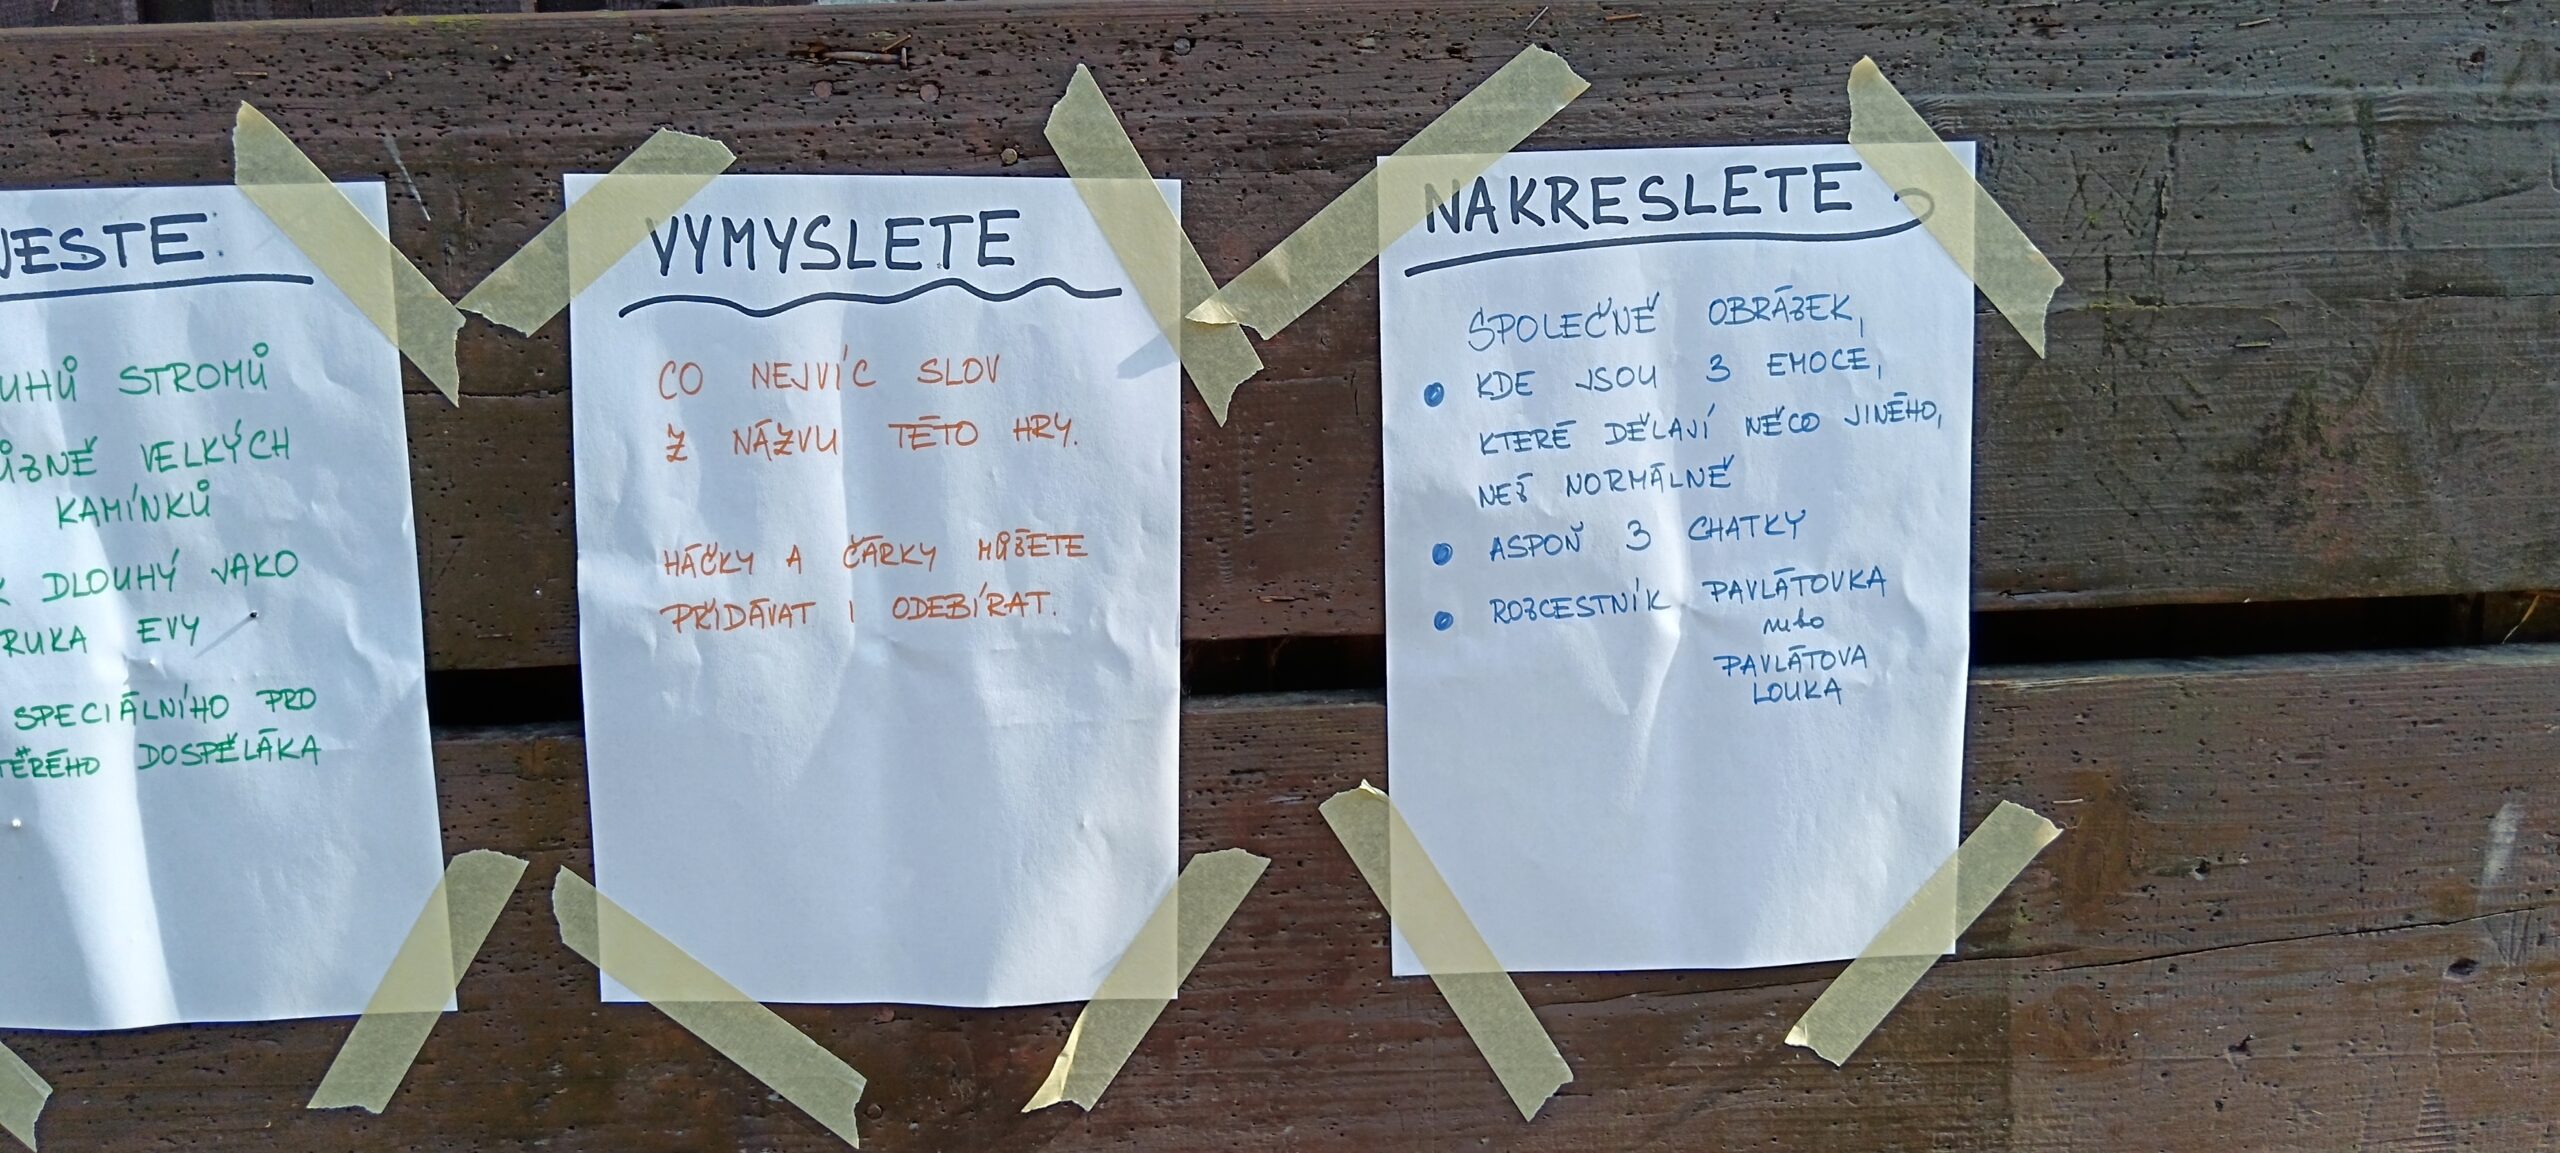 STROMŮ
VELKÝCH
KAMÍNKŮ
DLOUHÝ JAKO
RUKA EVY
SPECIÁLNÍHO PRO
DOSPĚLÁKA
VYMYSLETE
CO NEJVÍC SLOV
Z NÁZVU TÉTO HRY.
HÁČKY A ČÁRKY MŮŽETE
PŘIDÁVAT I ODEBÍRAT.
NAKRESLETE
SPOLEČNĚ OBRÁZEK,
• KDE JSOU 3 EMOCE,
KTERÉ DĚLAJÍ NĚCO JINÉHO,
NEŽ NORMÁLNĚ
• ASPOŇ 3 CHATKY
• ROZCESTNÍK PAVLÁTOVKA
nebo
PAVLÁTOVA
LOUKA